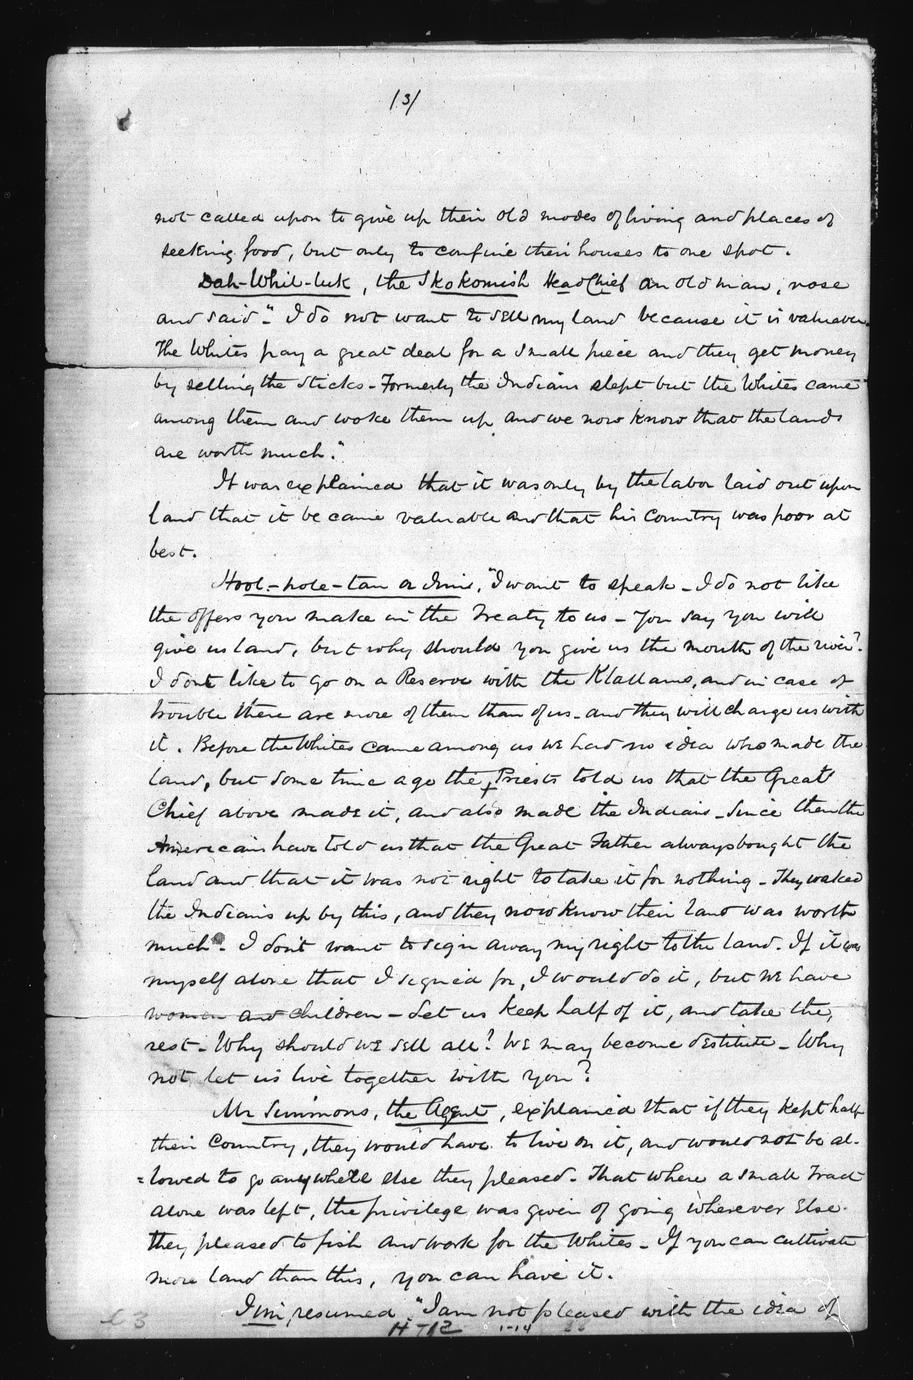 /3/
not called upon to give up their old modes of living and places of
seeking food, but only to confine their houses to one spot.
Dah-Whil-luk, the Skokomish Head Chief an old man, rose
and said "I do not want to sell my land because it is valuable.
The Whites pay a great deal for a small piece and they get money
by selling the sticks - Formerly the Indians slept but the Whites came
among them and woke them up and we now know that the lands
are worth much."
It was explained that it was only by the labor laid out upon
land that it became valuable and that his Country was poor at
best.
Hool-hole-tan or Jim. "I want to speak - I do not like
the offers you make in the Treaty to us - You say you will
give us land, but why should you give us the mouth of the river?
I don't like to go on a Reserve with the Klallams, and in case of
trouble there are more of them than of us - and they will charge us with
it. Before the Whites came among us we had no idea who made the
land, but some time ago the Priests told us that the Great
Chief above made it, and also made the Indians - Since then the
Americans have told us that the Great Father always bought the
land and that it was not right to take it for nothing - They waked
the Indians up by this, and they now know their land was worth
much - I don't want to sign away my right to the land. If it was
myself alone that I signed for, I would do it, but we have
women and children - Let us keep half of it, and take the
rest - Why should we sell all? We may become destitute - Why
not let us live together with you?
Mr Simmons, the Agent, explained that if they kept half
their Country, they would have to live on it, and would not be al-
=lowed to go anywhere else they pleased - That where a small Tract
alone was left, the privilege was given of going wherever else
they pleased to fish and work for the Whites - If you can cultivate
more land than this, you can have it.
Jim, resumed "I am not pleased with the idea of